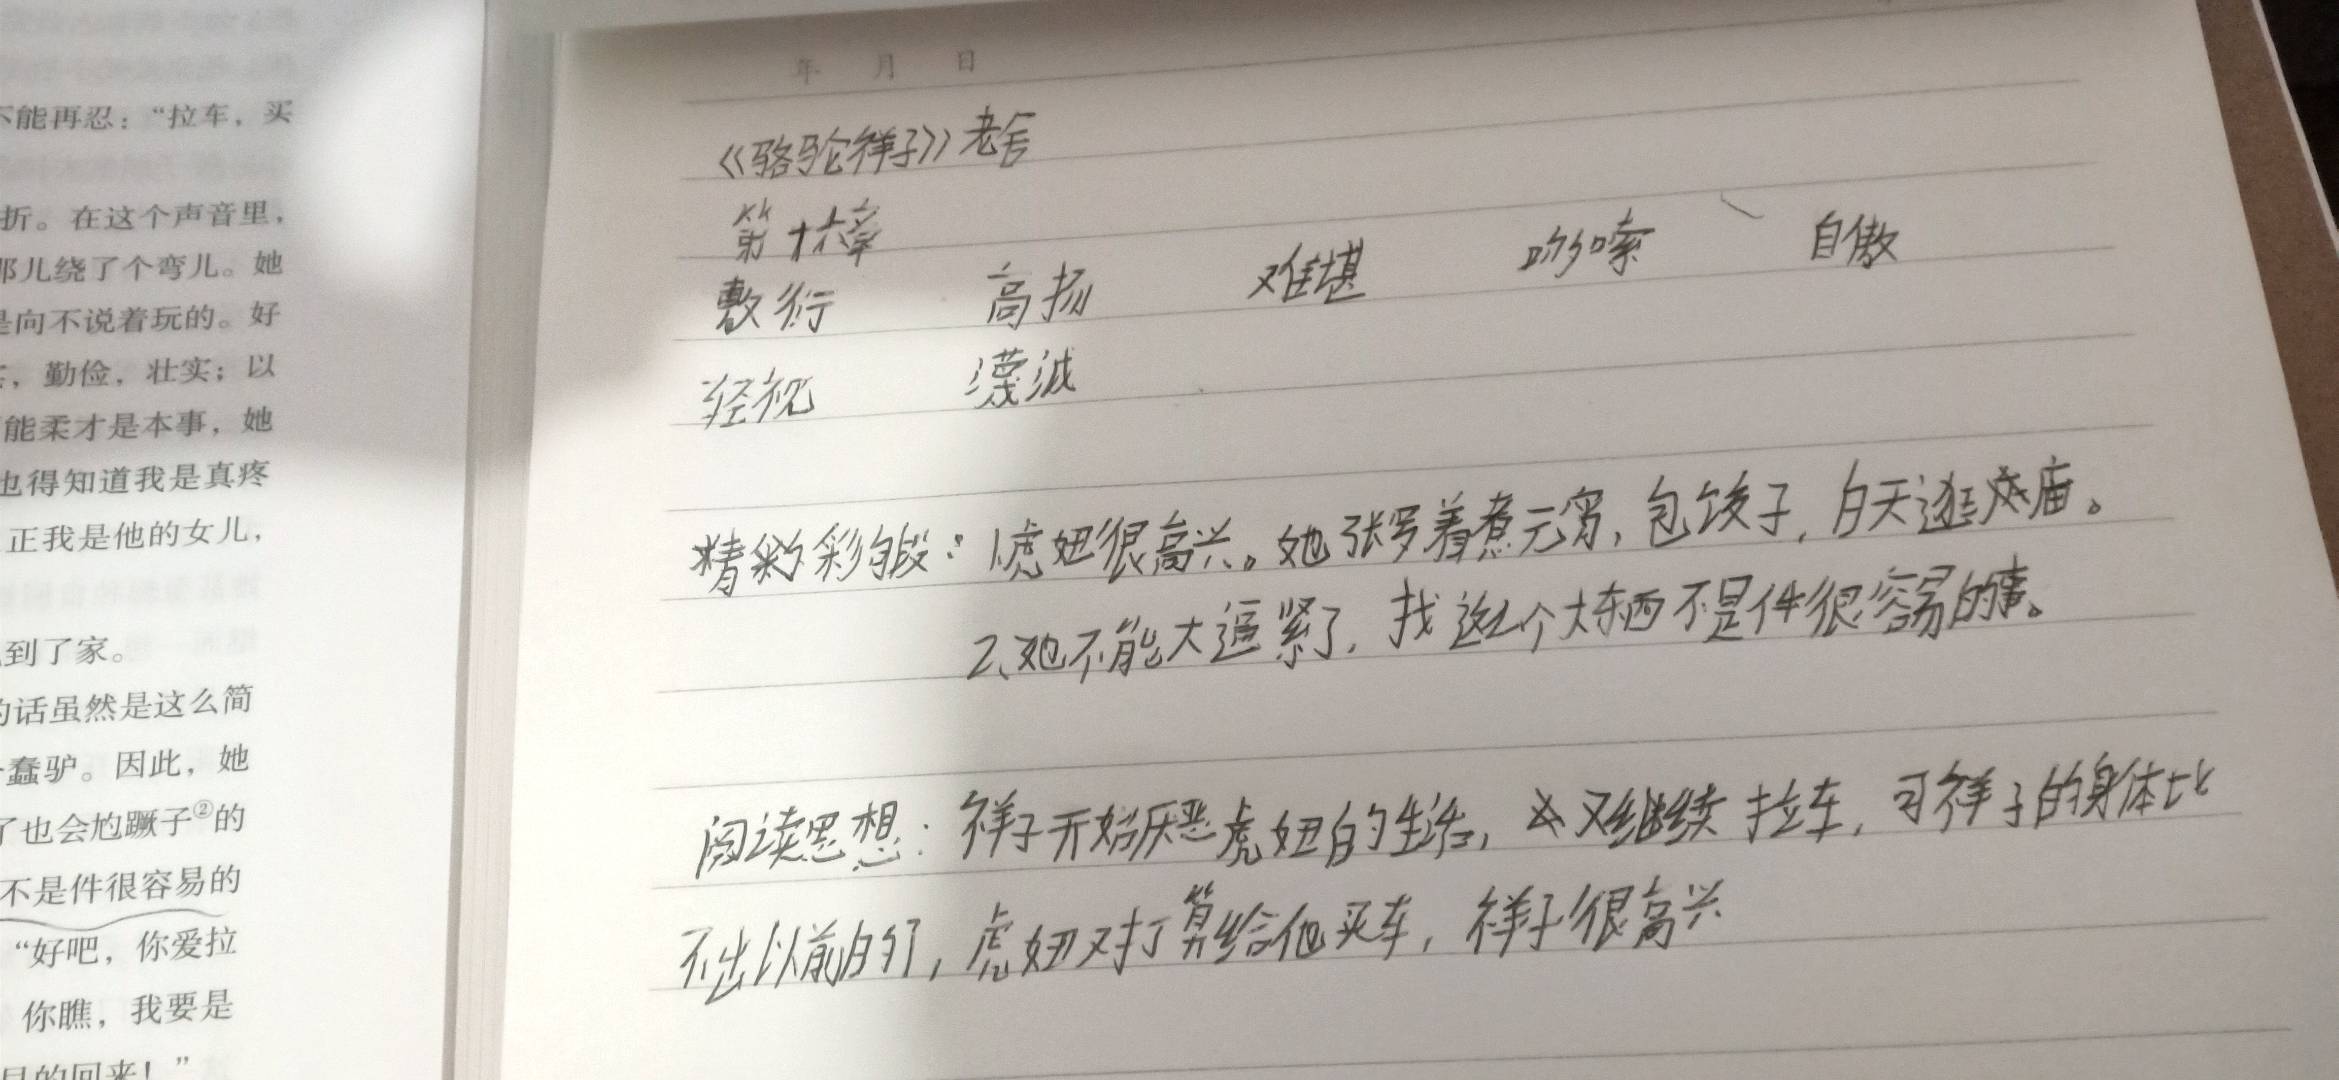 不能再忍：“拉车，买
折。在这个声音里，
那儿绕了个弯儿。她
是向不说着玩的。好
，勤俭，壮实；以
能柔才是本事，她
也得知道我是真疼
正我是他的女儿，
到了家。
的话虽然是这么简
蠢驴。因此，她
了也会尥蹶子②的
不是件很容易的
“好吧，你爱拉
你瞧，我要是
的回来！”
年 月 日
《骆驼祥子》老舍
第十六章
敷衍 高扬 难堪 哆嗦 自傲
轻视 蔑
精彩的段：1虎妞很高兴。她张罗着煮元宵，包饺子，白天逛庙。
2、她不能大逼紧了，找这么个大东西不是件很容易的事。
阅读思想：祥子开始厌恶虎妞的生活，又继续拉车，可祥子的身体比
不出以前的了，虎妞又打算给他买车，祥子很高兴